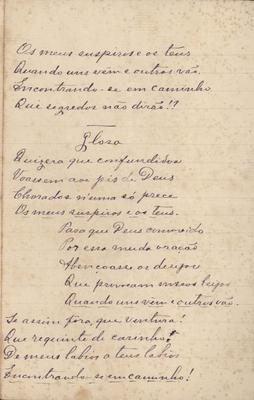 Os meus suspiros e os teus
Quando uns vêm e outros vão
Encontrando-se em caminho
Que segredos não dirão!?
Glosa
Quizera que confundidos
Voassem aos pés de Deus
Chorados n'uma só prece
Os meus suspiros e os teus.
Para que Deus comovido
Por essa muda oração
Abençoasse os
Que provocam meus
Quando uns vêm e outros vão.
Se assim fôra, que ventura!
Que requinte de carinho!
De meus labios a teus labios
Encontrando-se em caminho!